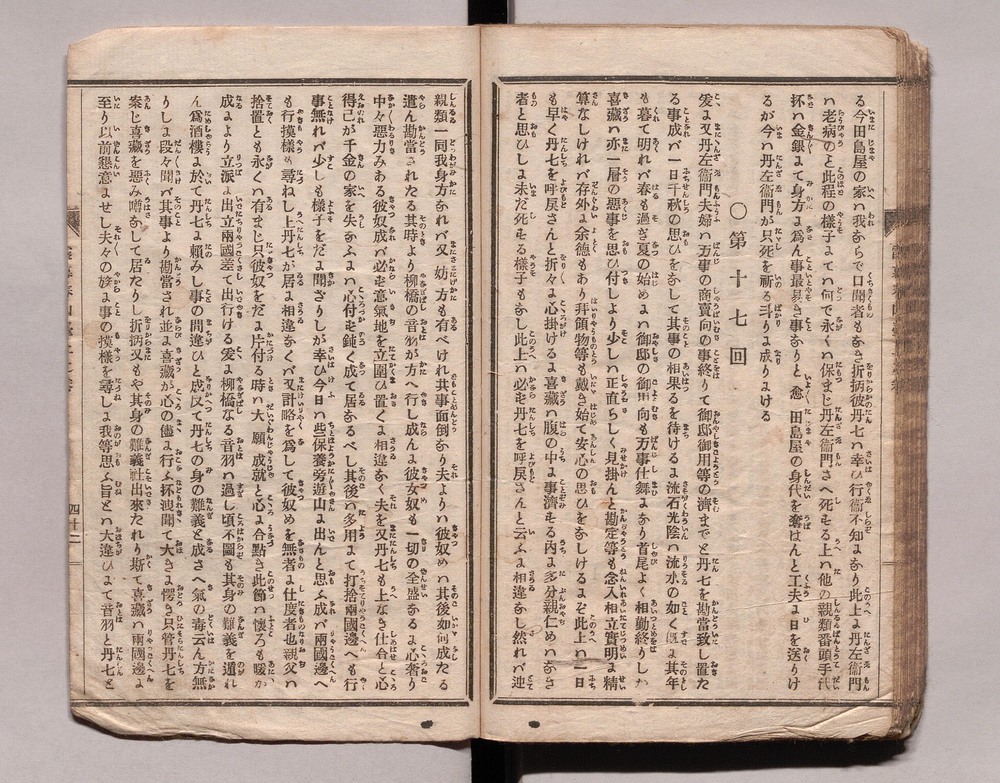 る今田島屋の家ハ我ならで口聞者もなき折柄彼丹七ハ幸ひ行衛不知ま
なり此上ま丹左衞門
ハ老病のと此程の樣子まて何で永くハ保まじ丹左衞門さへ死モる上ハ他の親類番頭手代
抔ハ金銀まて身方ま爲ん事最易き事なりと愈田島屋の身代を奪はんと工夫ま日を送りけ
るが今ハ丹左衞門が只死を祈る斗りま成りまける
○第十七回
爰ま又丹左衞門夫婦ハ万事の商賣向の事終りて御邸御用等の濟までと丹七を勘當致し置た
る事成バ一日千秋の思ひをなして其事の相果るを待けるま流石光陰ハ流水の如く既ま其年
も暮て明れバ春も過ぎ夏の始めまハ御邸の御用向も万事仕舞まなり首尾よく相勤終りしか
喜藏ハ亦一層の惡事を思ひ付しより少しハ正直らしく見掛んと勘定等も念入相立實明ま精
算なしけれバ存外ま余德もあり拜領物等も戴き始て安心の思ひをなしけるまぞ此上ハ一日
も早く丹七を呼戾さんと折々ま心掛けるま喜藏ハ腹の中ま事濟モる內ま多分親仁めハなき
者と思ひしま未だ死モる樣子もなし此上ハ必モ丹七を呼戾さんと云ふま相違なし然れバ迚
親類一同我身方なれバ又妨げ方も有べけれ共事面倒なり夫よりハ彼奴めハ其後如何成たる
遣ん勘當されたる其時より柳橋の音羽が方へ行し成んま彼女奴も一切の全盛なるま心奢り
中々惡力みある彼奴成バ必モ意氣地を立圍ひ置くま相違なく夫を又丹七も上なき仕合と心
得己が千金の家を失なふまハ心付モ鈍く成て居なるべし其後ハ多用まて打捨兩國邊へも行
事無れバ少しも樣子をだま聞ざりしが幸ひ今日ハ些保養旁遊山ま出んと思ふま成バ兩國邊へ
も行摸樣も尋ねし上丹七が居ま相違なくバ又計略を爲して彼奴めを無者ま仕度者也親父ハ
捨置とも永くハ有まじ只彼奴をだま片付る時ハ大願成就と心ま合點き此節ハ懷ろも暖か
成まより立派ま出立兩國差て出行ける爰ま柳橋なる音羽ハ過し頃不圖も其身の難義を遁れ
ん爲酒樓ま於て丹七ま賴みし事の間違ひと成反て丹七の身の難義と成さへ氣の毒云ん方無
りしま段々聞バ其事より勘當され並ま喜藏が心の儘ま行ふ抔洩聞て大きま愕き只管丹七を
案じ喜藏を惡み噂なして居たりし折柄又もや其身の難義社出來たれり斯て喜藏ハ兩國邊ま
至り以前懇意ませし夫々の妓ま事の摸樣を尋ねしま我等思ふ旨とハ大違ひまて音羽と丹七と
四十二